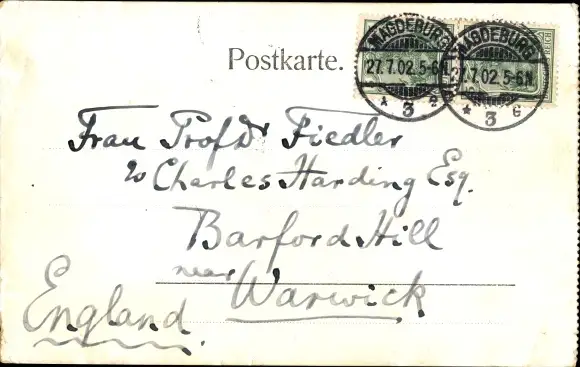 Postkarte.
MAGDEBURG
27.7.02.5-6N
* 3 *
MAGDEBURG
27.7.02.5-6N
* 3 G
REICH
Frau Prof Dr Fiedler
c/o Charles Harding Esq.
Barford Hill
near
Warwick
England.